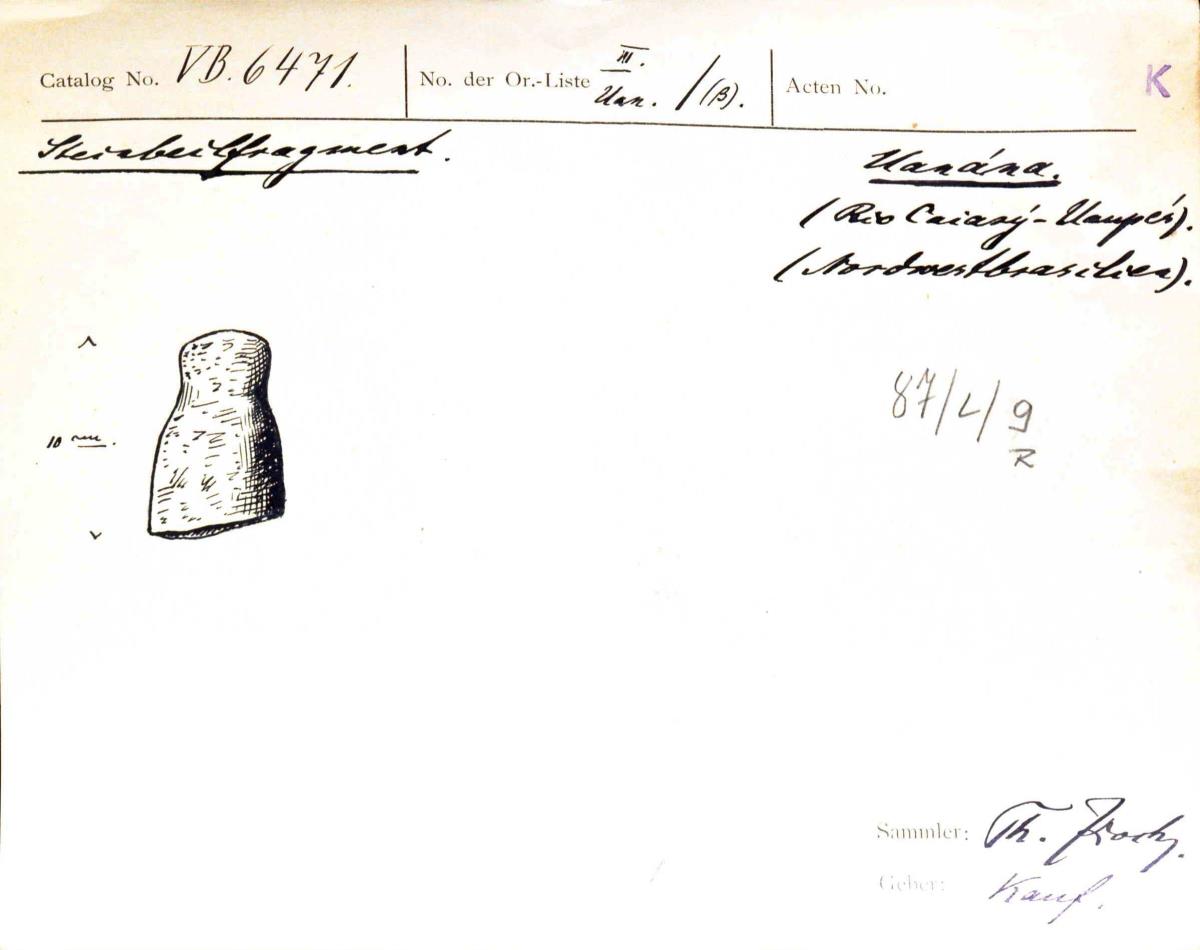 Catalog No. VB. 6471.
No. der Or.-Liste III. Uan. 1 (B).
Acten No.
K
Steinbeilfragment.
Uanána.
(Rio Caiarý-Uaupés).
(Nordwestbrasilien).
10 cm.
87/L/9
R
Sammler: Th. Koch.
Geber: Kauf.